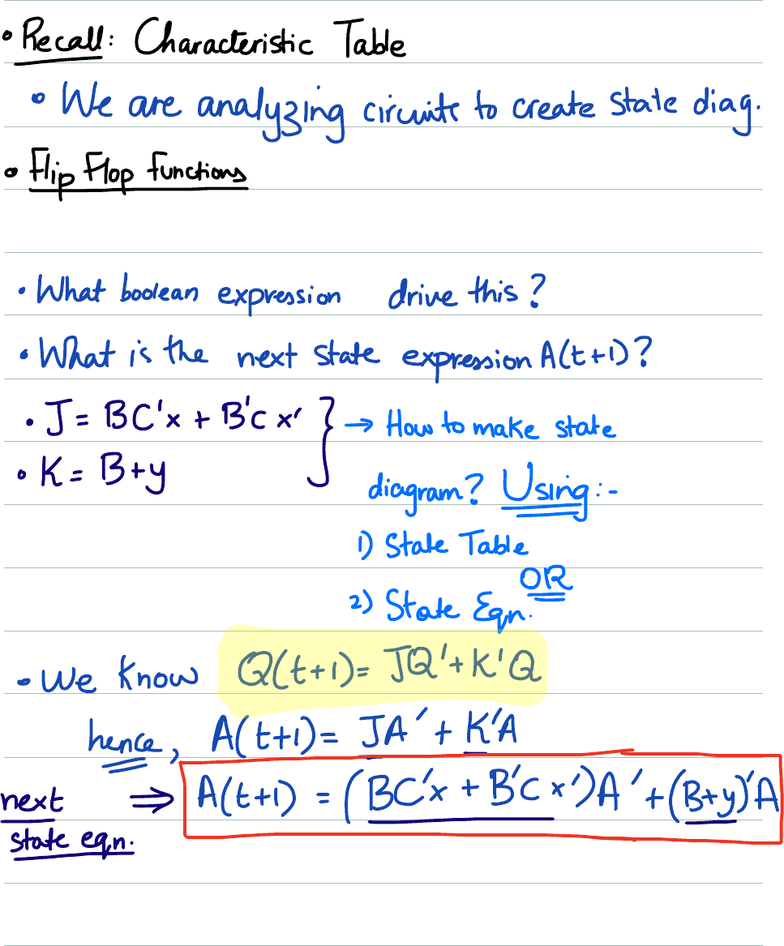 • Recall: Characteristic Table
• We are analyzing circuits to create state diag.
• Flip Flop functions
• What boolean expression drive this?
• What is the next state expression A(t+1)?
• J = BC'x + B'cx'
• K = B+y
→ How to make state
diagram? Using:-
1) State Table
OR
2) State Eqn.
• We know Q(t+1) = JQ' + K'Q
hence, A(t+1) = JA' + K'A
next state eqn. ⇒ A(t+1) = (BC'x + B'Cx')A' + (B+y)'A